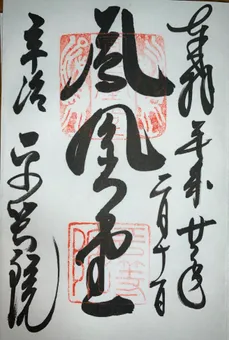 奉拝
平成廿年
二月十一日
鳳凰堂
宇治
平等院